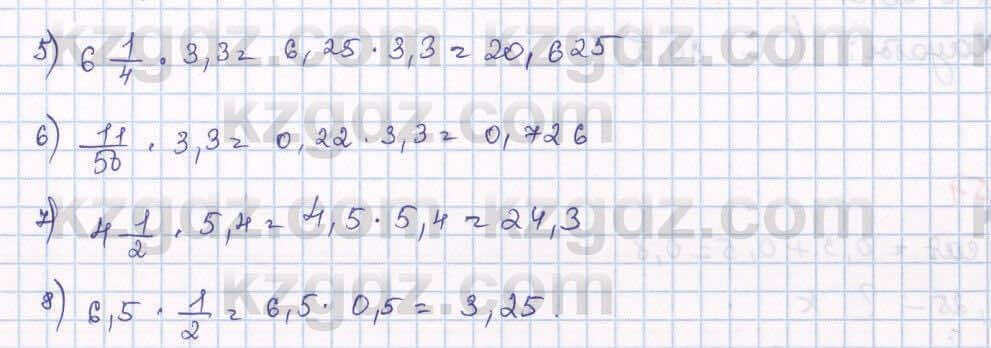 kzgdz.com kzgdz.com
5) 6 1/4 · 3,3 = 6,25 · 3,3 = 20,625
kzgdz.com
6) 11/50 · 3,3 = 0,22 · 3,3 = 0,726
7) 4 1/2 · 5,4 = 4,5 · 5,4 = 24,3
kzgdz.com kzgdz.com
8) 6,5 · 1/2 = 6,5 · 0,5 = 3,25.
kzgdz.com